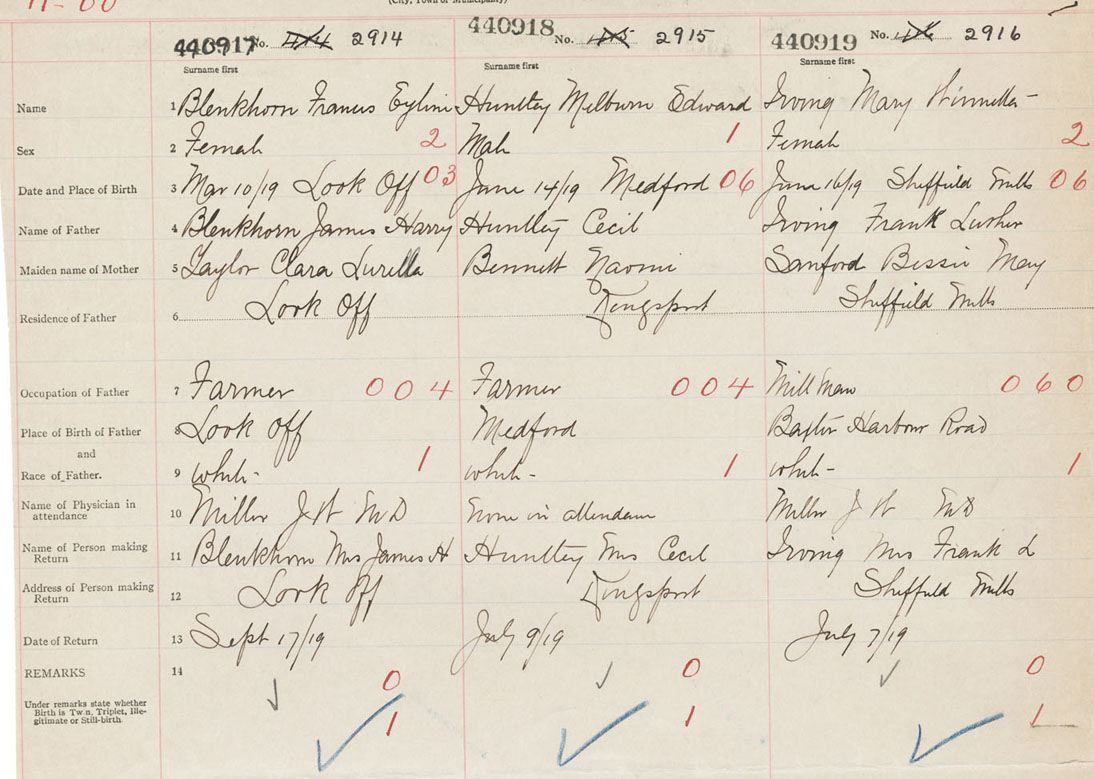 (City, Town or Municipality)
11-00
440917 No. 2914 440918 No. 2915 440919 No. 2916
Surname first Surname first Surname first
Name 1 Blenkhorn Francis Huntley Melburn Edward Irving Mary
Sex 2 Female 2 Male 1 Female 2
Date and Place of Birth 3 Mar 10/19 Look Off 03 June 14/19 Medford 06 June 16/19 Sheffield Mills 06
Name of Father 4 Blenkhorn James Harry Huntley Cecil Irving Frank Luther
Maiden name of Mother 5 Taylor Clara Lurella Bennett Naomi Sanford Bessie May
Residence of Father 6 Look Off Kingsport Sheffield Mills
Occupation of Father 7 Farmer 004 Farmer 004 Mill Man 060
Place of Birth of Father 8 Look Off Medford Baxter Harbour Road
and
Race of Father. 9 white - 1 white - 1 white - 1
Name of Physician in attendance 10 Miller J W MD None in attendance Miller J W MD
Name of Person making Return 11 Blenkhorn Mrs James H Huntley Mrs Cecil Irving Mrs Frank L
Address of Person making Return 12 Look Off Kingsport Sheffield Mills
Date of Return 13 Sept 17/19 July 9/19 July 7/19
REMARKS 14 0 0 0
Under remarks state whether Birth is Twin, Triplet, Ille-
gitimate or Still-birth. 1 1 1